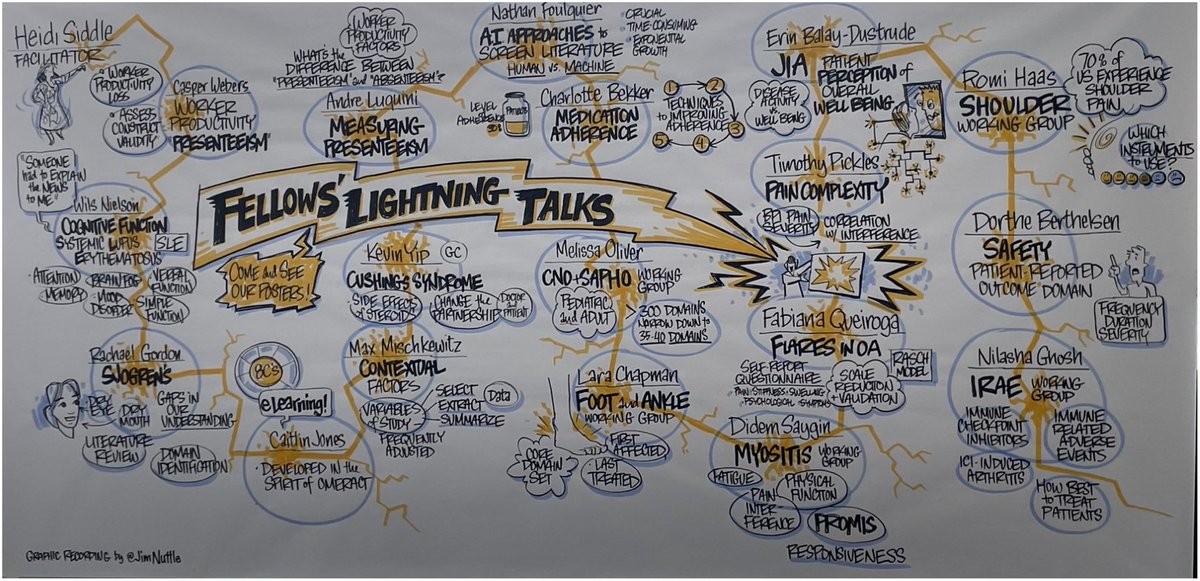 Heidi Siddle
FACILITATOR
WORKER
PRODUCTIVITY
LOSS
ASSESS
CONSTRUCT
VALIDITY
Casper Webers
WORKER
PRODUCTIVITY
PRESENTEEISM"
"SOMEONE
had to EXPLAIN
the NEWS
to ME"
Wils Nielson
COGNITIVE FUNCTION
SYSTEMIC LUPUS
ERYTHEMATOSUS
SLE
ATTENTION
MEMORY
BRAIN FOG
MOOD
DISORDER
VERBAL
FUNCTION
SIMPLE
FUNCTION
Rachael Gordon
SJOGREN'S
DRY
EYE
DRY
MOUTH
GAPS IN
OUR
UNDERSTANDING
LITERATURE
REVIEW
DOMAIN
IDENTIFICATION
BC's
eLearning!
Caitlin Jones
• DEVELOPED IN the
SPIRIT of OMERACT
WORKER
PRODUCTIVITY
FACTORS
WHAT'S the
DIFFERENCE
BETWEEN
"PRESENTEEISM" and "ABSENTEEISM"?
Andre Luquini
MEASURING
PRESENTEEISM
Nathan Foulquier
A.I. APPROACHES to
SCREEN LITERATURE
HUMAN vs. MACHINE
• CRUCIAL
• TIME-CONSUMING
• EXPONENTIAL
GROWTH
LEVEL
ADHERENCE
Charlotte Bekker
MEDICATION
ADHERENCE
1
2
TECHNIQUES
to IMPROVING
ADHERENCE
3
5
4
FELLOWS' LIGHTNING TALKS
COME and SEE
OUR POSTERS!
Kevin Yip
GC
CUSHINGS SYNDROME
SIDE EFFECTS
of STEROIDS
CHANGE the
PARTNERSHIP
DOCTOR
and
PATIENT
Max Mischkewitz
CONTEXTUAL
FACTORS
VARIABLES
of STUDY
FREQUENTLY
ADJUSTED
SELECT
EXTRACT
SUMMARIZE
Data
Melissa Oliver
CNO + SAPHO
WORKING
GROUP
PEDIATRIC
and ADULT
300 DOMAINS
NARROW DOWN to
35-40 DOMAINS
Lara Chapman
FOOT and ANKLE
WORKING GROUP
CORE
DOMAIN
SET
FIRST
AFFECTED
LAST
TREATED
Erin Balay-Dustrude
JIA
PATIENT
PERCEPTION of
OVERALL
WELL BEING
DISEASE
ACTIVITY
vs
WELL BEING
Timothy Pickles
PAIN COMPLEXITY
BPI PAIN
SEVERITY
CORRELATION
w/ INTERFERENCE
Fabiana Queiroga
FLARES IN OA
SELF REPORT
QUESTIONNAIRE
• PAIN • STIFFNESS • SWELLING
• PSYCHOLOGICAL • SYMPTOMS
SCALE
REDUCTION
+ VALIDATION
RASCH
MODEL
Didem Saygin
MYOSITIS
WORKING
GROUP
FATIGUE
PHYSICAL
FUNCTION
PAIN
INTER-
FERENCE
PROMIS
RESPONSIVENESS
Romi Haas
SHOULDER
WORKING GROUP
70% of
US EXPERIENCE
SHOULDER
PAIN
WHICH
INSTRUMENTS
to USE?
Dorthe Berthelsen
SAFETY
PATIENT-REPORTED
OUTCOME DOMAIN
FREQUENCY
DURATION
SEVERITY
Nilasha Ghosh
IRAE
WORKING
GROUP
IMMUNE
CHECKPOINT
INHIBITORS
IMMUNE
RELATED
ADVERSE
EVENTS
ICI-INDUCED
ARTHRITIS
HOW BEST
to TREAT
PATIENTS
GRAPHIC RECORDING by @Jim Nuttle